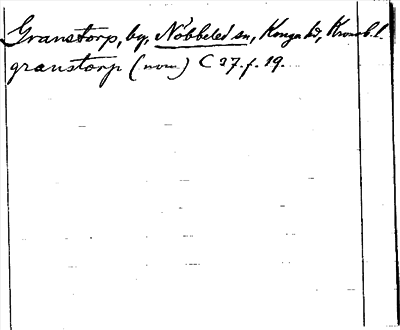 Granstorp, by, Nöbbeled sn, Konga hd, Kronob. l.
granstorp (nom.) C 37. f. 19.